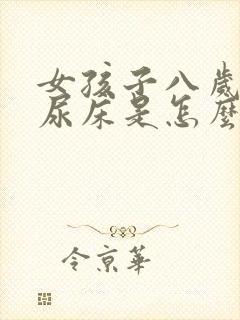 女孩子八歲
尿床是怎麼
令京華